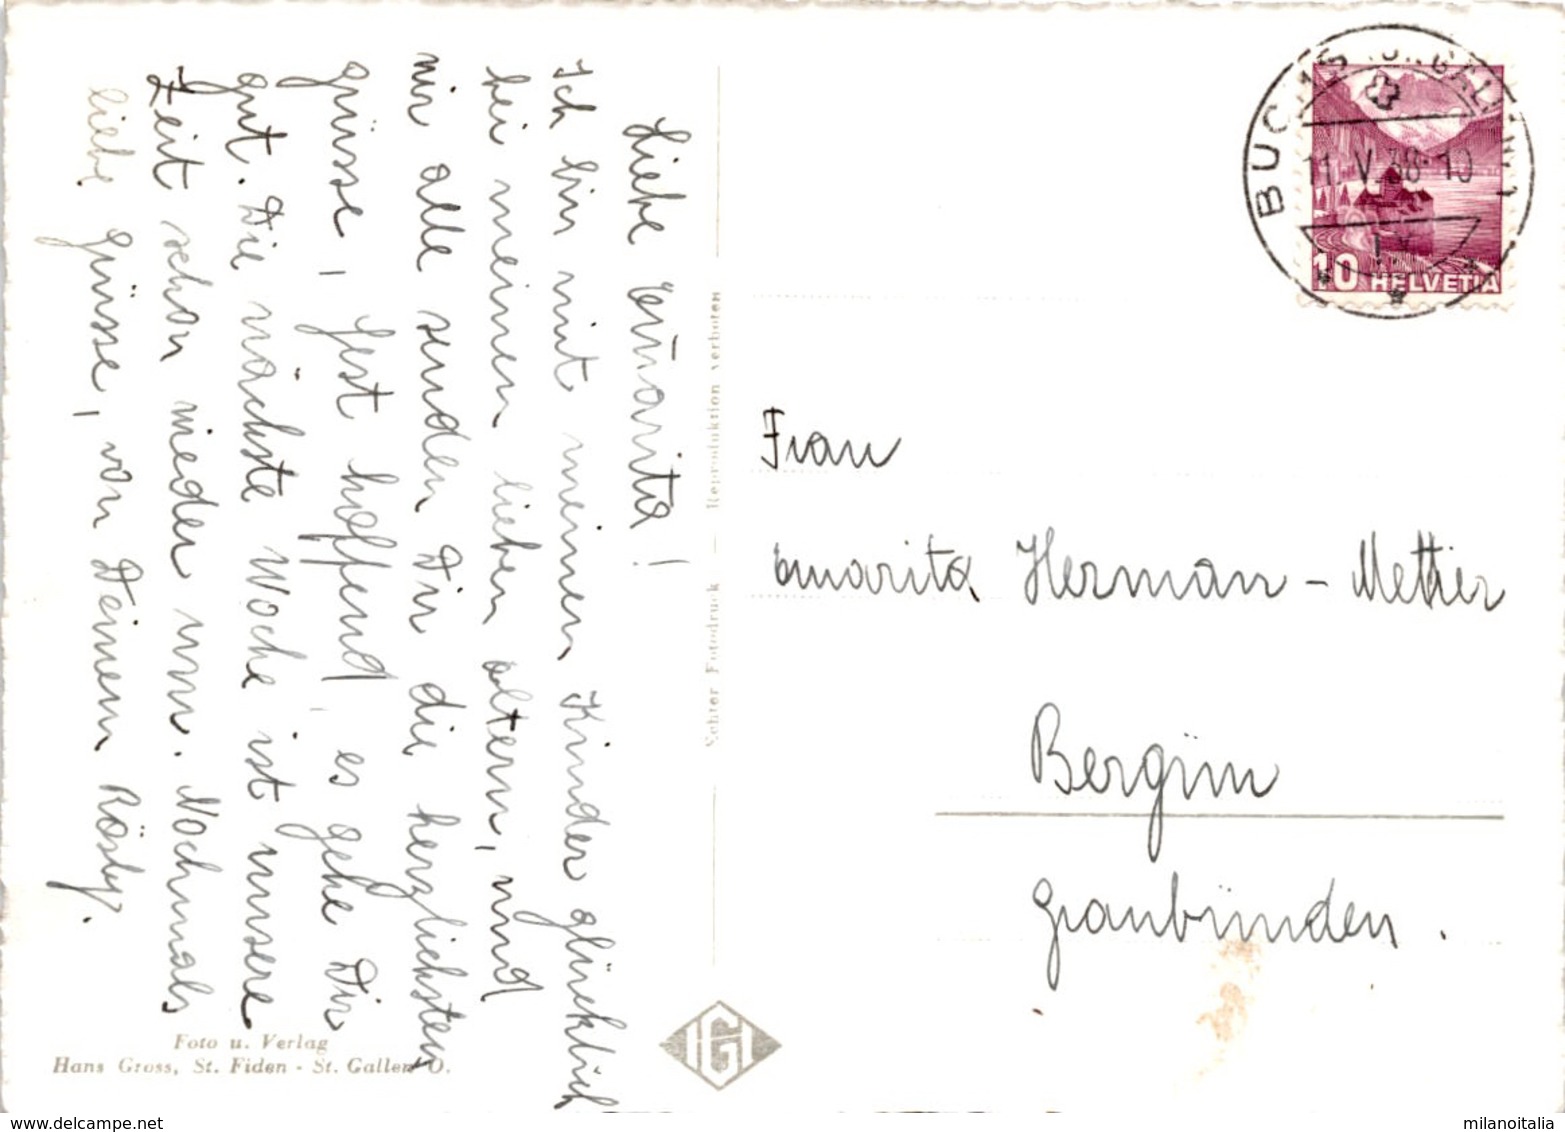 Liebe Emarita!
Ich bin mit meinen Kinder glücklich
bei meinen lieben altern, und
wir alle senden Dir die herzlichsten
grüsse, fest hoffend, es gehe Dir
gut. Die nächste Woche ist unsere
Zeit schon wieder um. Nochmals
liebe grüsse, von Deinem Rösly.
Foto u. Verlag
Hans Gross, St. Fiden - St. Gallen O.
Echter Fotodruck Reproduktion verboten
IGI
BUCHS (ST. GALLEN) 1
11. V. 38-10
10 HELVETIA
Frau
Emarita Herman - Mettier
Bergün
Graubünden.
www.delcampe.net
milanoitalia